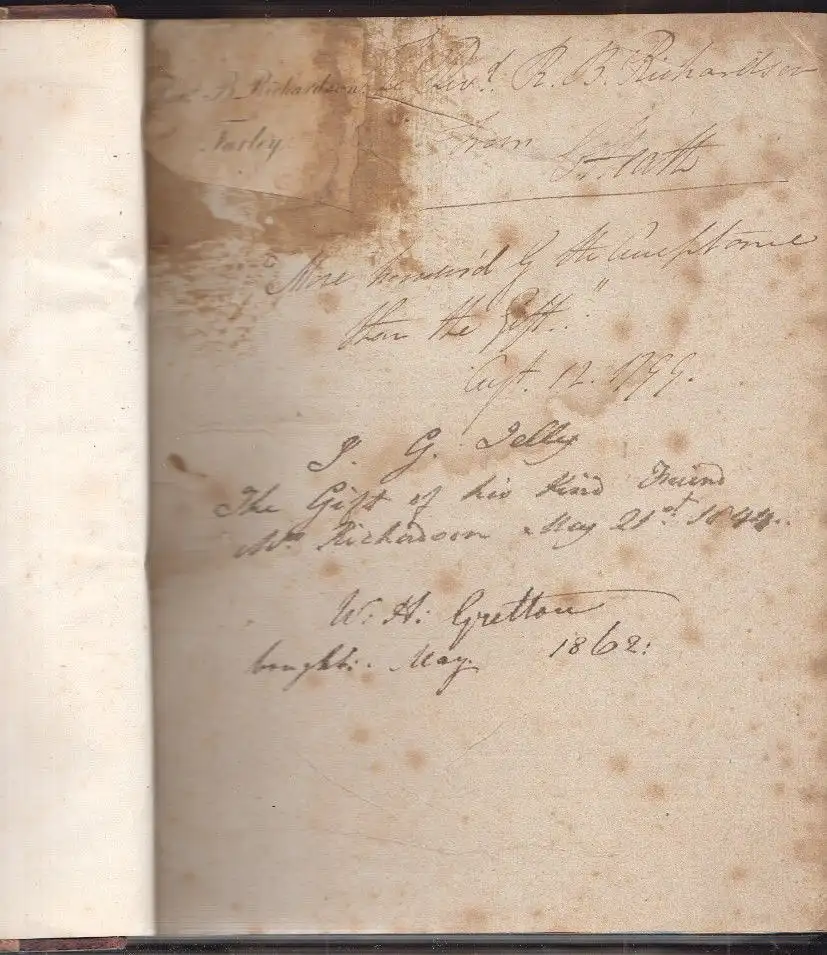 B Richardson
Farley
Revd. R. B. Richardson
from
More honour'd by the Acceptance
than the Gift.."
12. 1799.
J. G. Jelly
The Gift of his Kind Friend
Mr. Richardson May 21st 1844..
W: H: Gretton
bought: May 1862: